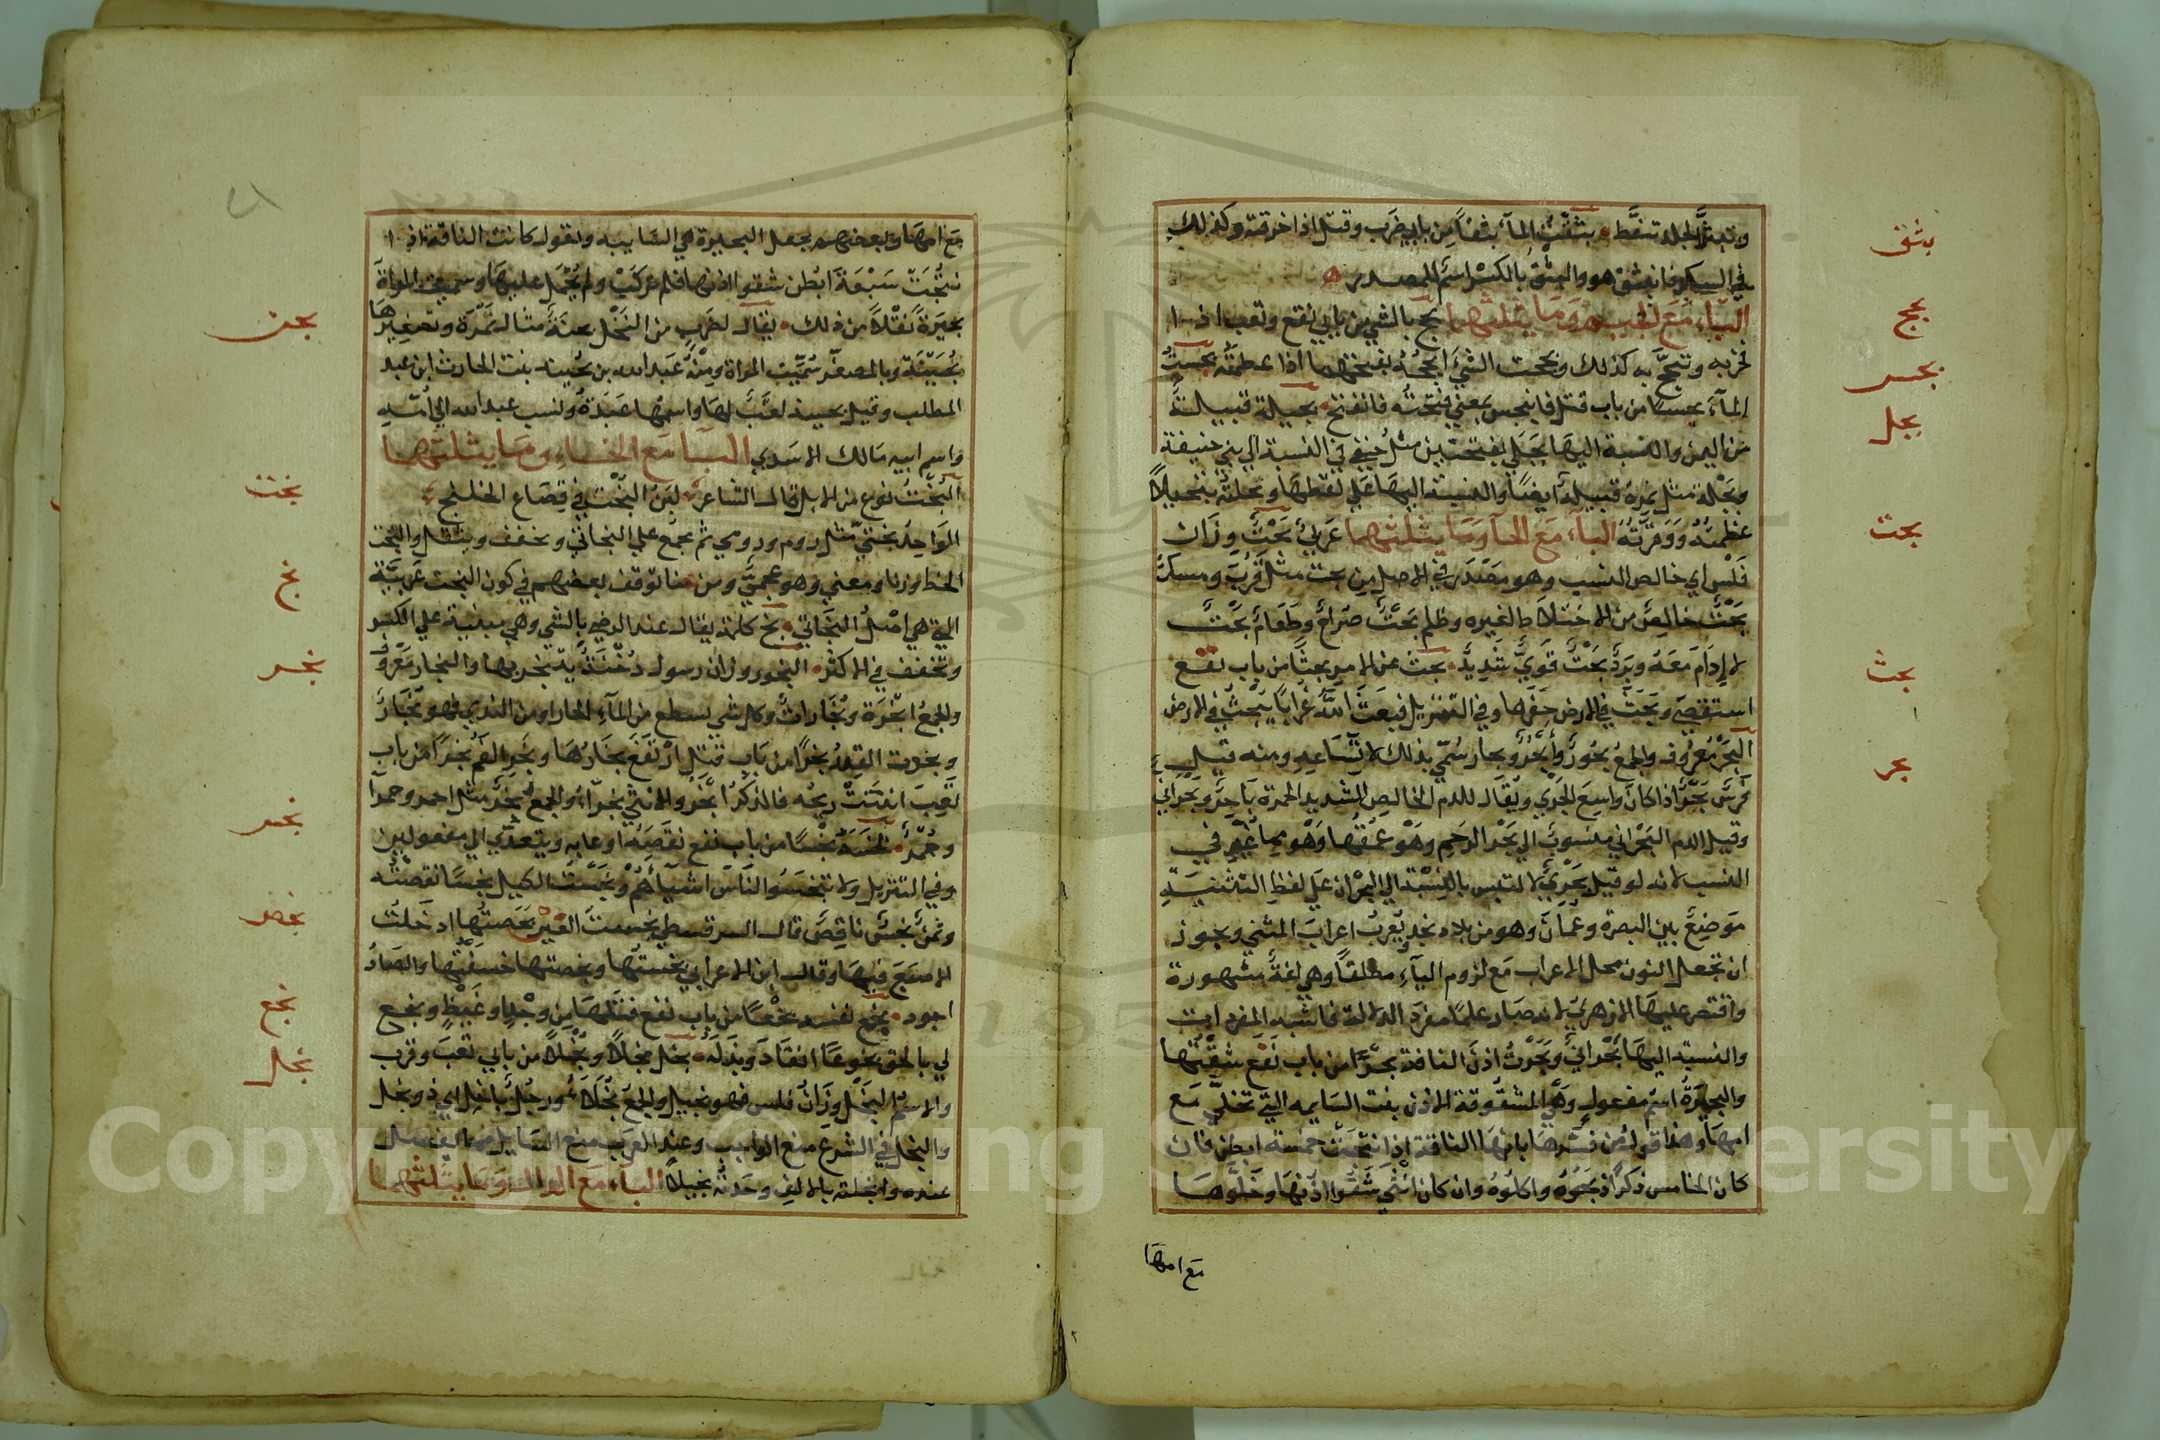 وتبثر الجلد تنفط بثقت الماء بثقا من باب ضرب وقتل اذا خرقته وكذلك
في السكر فانبثق هو والبثق بالكسر اسم للمصدر
الباء مع الجيم وما يثلثهما بجح بالشي من بابي نفع وتعب اذا
فخر به وتبجح به كذلك وبجحت الشي ابجحه بفتحهما اذا عظمته بجست
الماء بجسا من باب قتل فانبجس بمعني فتحته فانفتح بجيلة قبيلة
من اليمن والنسبة اليها بجلي بفتحتين مثل حنفي في النسبة الي بني حنيفة
وبجلة مثل تمرة قبيلة ايضا والنسبة اليها علي لفظها وبجلته تبجيلا
عظمته ووقرته الباء مع الحاء وما يثلثهما عربي بحت وزان
فلس اي خالص النسب وهو مصدر في الاصل من بحت مثل قرب ومسك
بحت خالص من الاختلاط بغيره وظلم بحت صراح وطعام بحت
لا ادام معه وبرد بحت قوي شديد بحث عن الامر بحثا من باب نفع
استقصي وبحث في الارض حفرها وفي التنزيل فبعث الله غرابا يبحث في الارض
البحر معروف والجمع بحور وابحر وبحار سمي بذلك لاتساعه ومنه قيل
فرس بحر اذا كان واسع الجري ويقال للدم الخالص الشديد الحمرة باحر وبحراني
وقيل الدم البحراني منسوب الي بحر الرحم وهو عمقها وهو مما غير في
النسب لانه لو قيل بحري لالتبس بالنسبة الي البحر البحران علي لفظ التثنية
موضع بين البصرة وعمان وهو من بلاد نجد يعرب اعراب المثني ويجوز
ان تجعل النون محل الاعراب مع لزوم الياء مطلقا وهي لغة مشهورة
واقتصر عليها الازهري لانه صار علما مفرد الدلالة فاشبه المفردات
والنسبة اليها بحراني وبحرت اذن الناقة بحرا من باب نفع شققتها
والبحيرة اسم مفعول وهي المشقوقة الاذن بنت السايبة التي تخلي مع
امها وهذا قول من فسرها بانها الناقة اذا نتجت خمسة ابطن فان
كان الخامس ذكرا ذبحوه واكلوه وان كان انثي شقوا اذنها وخلوها
مع امها
بثق
بجح
بجس
بجل
بحت
بحث
بحر
مع امها وبعضهم يجعل البحيرة هي السايبة ويقول كانت الناقة اذا
نتجت سبعة ابطن شقوا اذنها فلم تركب ولم يحمل عليها وسميت المراة
بحيرة نقلا من ذلك يقال لضرب من النخل بحنة مثال تمرة وتصغيرها
بحينة وبالمصغر سميت المراة ومنه عبد الله بن بحينة بنت الحارث ابن عبد
المطلب وقيل بحينة لقب لها واسمها عبدة ونسب عبد الله الي امه
واسم ابيه مالك الاسدي الباء مع الخاء وما يثلثهما
البخت نوع من الابل قال الشاعر لبن البخت في قصاع الخلنج
الواحد بختي مثل روم ورومي ثم يجمع علي البخاتي ويخفف ويثقل والبخت
الحظ وزنا ومعني وهو عجمي ومن هنا توقف بعضهم في كون البخت عربية
التي هي اصل البخاتي بخ كلمة يقال عند الرضي بالشي وهي مبنية علي الكسر
وتخفف في الاكثر البخور وزان رسول دخنة يتبخر بها والبخار معروف
والجمع ابخرة وبخارات وكل شي يسطع من الماء الحار او من الندي فهو بخار
وبخرت القدر بخرا من باب قتل ارتفع بخارها وبخر الفم بخرا من باب
تعب انتنت ريحه فالذكر ابخر والانثي بخراء والجمع بخر مثل احمر وحمراء
وحمر بخسه بخسا من باب نفع نقصه او عابه ويتعدي الي مفعولين
وفي التنزيل ولا تبخسوا الناس اشياءهم وبخست الكيل بخسا نقصته
وثمن بخس ناقص قال السرقسطي بخصت العين بخصتها ادخلت
الاصبع فيها وقال ابن الاعرابي بخستها وبخصتها خسفتها والصاد
اجود بخع نفسه بخعا من باب نفع قتلها من وجد او غيظ وبخع
لي بالحق بخوعا انقاد وبذله بخل بخلا وبخلا من بابي تعب وقرب
والاسم البخل وزان فلس فهو بخيل والجمع بخلاء ورجل باخل اي ذو بخل
والبخل في الشرع منع الواجب وعند العرب منع السايل مما يفضل
عنده وابخلته بالالف وجدته بخيلا الباء مع الدال وما يثلثهما
بحن
بخت
بخ
بخر
بخس
بخص
بخع
بخل